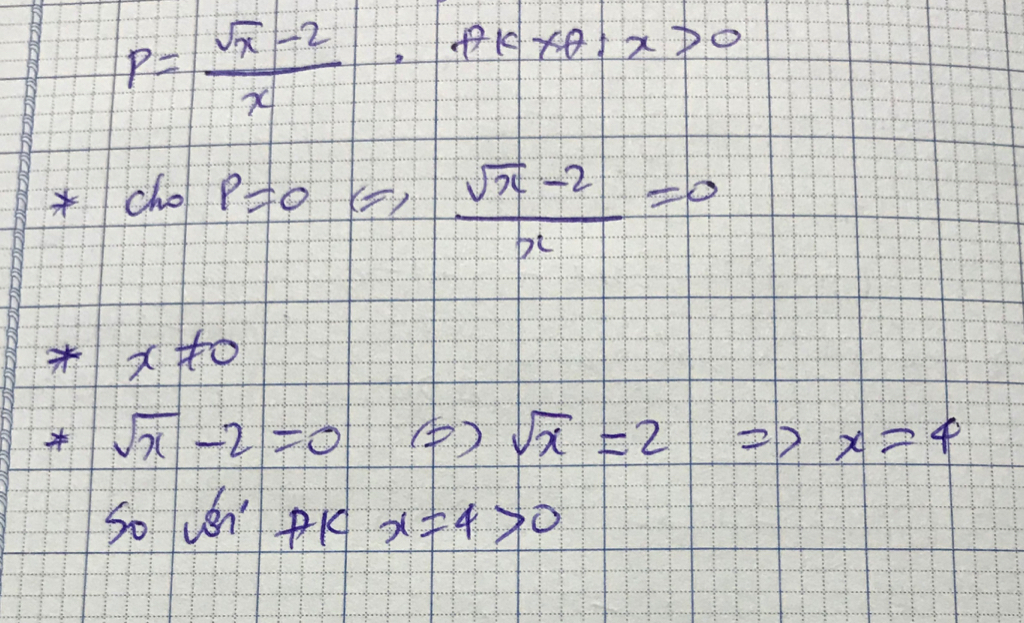 P = (√x - 2)/x , ĐKXĐ: x > 0
* cho P = 0 <=> (√x - 2)/x = 0
* x ≠ 0
* √x - 2 = 0 <=> √x = 2 => x = 4
So với ĐK x = 4 > 0